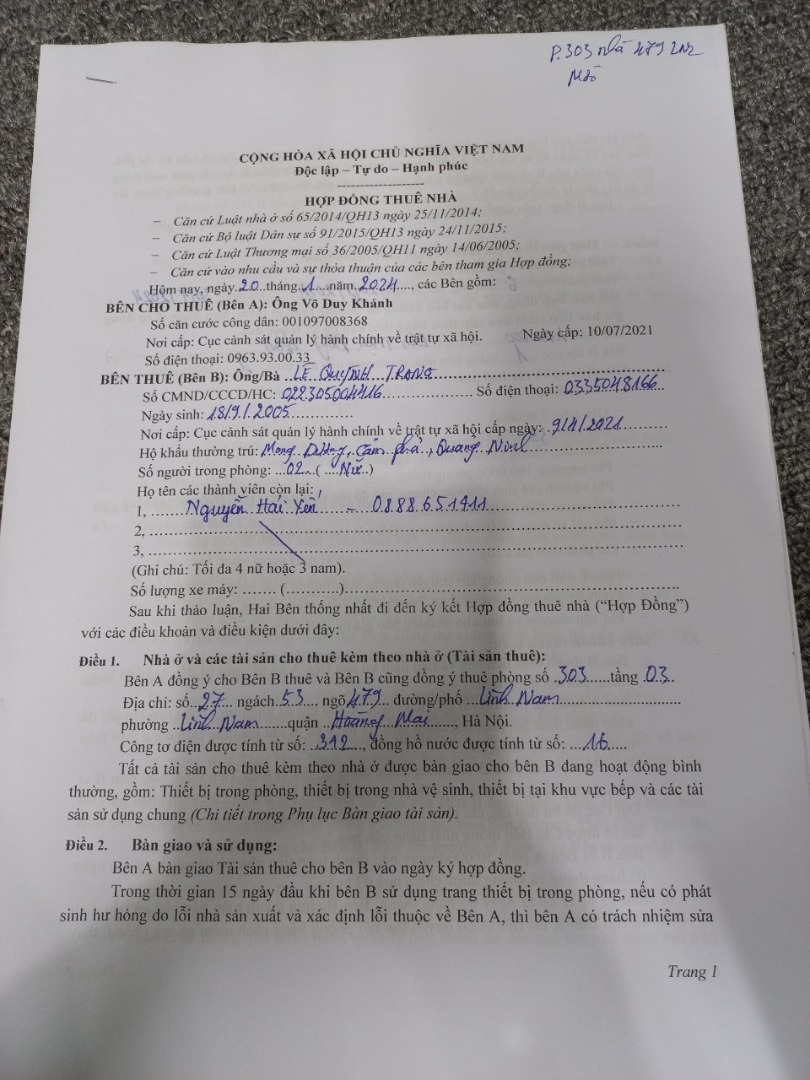 P.303 nhà 479 LN2
CỘNG HÒA XÃ HỘI CHỦ NGHĨA VIỆT NAM
Độc lập – Tự do – Hạnh phúc
--------------------
HỢP ĐỒNG THUÊ NHÀ
– Căn cứ Luật nhà ở số 65/2014/QH13 ngày 25/11/2014;
– Căn cứ Bộ luật Dân sự số 91/2015/QH13 ngày 24/11/2015;
– Căn cứ Luật Thương mại số 36/2005/QH11 ngày 14/06/2005;
– Căn cứ vào nhu cầu và sự thỏa thuận của các bên tham gia Hợp đồng;
Hôm nay, ngày.20..tháng.1....năm.2024...., các Bên gồm:
BÊN CHO THUÊ (Bên A): Ông Võ Duy Khánh
Số căn cước công dân: 001097008368
Nơi cấp: Cục cảnh sát quản lý hành chính về trật tự xã hội. Ngày cấp: 10/07/2021
Số điện thoại: 0963.93.00.33
BÊN THUÊ (Bên B): Ông/Bà ..LÊ QUỲNH TRANG..........
Số CMND/CCCD/HC: 022305004416.................. Số điện thoại: 0335048166..
Ngày sinh: 18/9/2005..............
Nơi cấp: Cục cảnh sát quản lý hành chính về trật tự xã hội cấp ngày: .9/4/2021........
Hộ khẩu thường trú: Mông Dương, Cẩm phả, Quảng Ninh..........
Số người trong phòng: ...02...( ....Nữ..)
Họ tên các thành viên còn lại:
1, ......Nguyễn Hải Yến – 0888651411..........
2, ..........
3, ..........
(Ghi chú: Tối đa 4 nữ hoặc 3 nam).
Số lượng xe máy: ....... (...........)..........
Sau khi thảo luận, Hai Bên thống nhất đi đến ký kết Hợp đồng thuê nhà (“Hợp Đồng”)
với các điều khoản và điều kiện dưới đây:
Điều 1. Nhà ở và các tài sản cho thuê kèm theo nhà ở (Tài sản thuê):
Bên A đồng ý cho Bên B thuê và Bên B cũng đồng ý thuê phòng số .303......tầng .03..
Địa chỉ: số..27... ngách.53.... ngõ.479... đường/phố ...Lĩnh Nam..........
phường ..Lĩnh Nam........quận ..Hoàng Mai......., Hà Nội.
Công tơ điện được tính từ số: ..312..., đồng hồ nước được tính từ số: ...16.....
Tất cả tài sản cho thuê kèm theo nhà ở được bàn giao cho bên B đang hoạt động bình
thường, gồm: Thiết bị trong phòng, thiết bị trong nhà vệ sinh, thiết bị tại khu vực bếp và các tài
sản sử dụng chung (Chi tiết trong Phụ lục Bàn giao tài sản).
Điều 2. Bàn giao và sử dụng:
Bên A bàn giao Tài sản thuê cho bên B vào ngày ký hợp đồng.
Trong thời gian 15 ngày đầu khi bên B sử dụng trang thiết bị trong phòng, nếu có phát
sinh hư hỏng do lỗi nhà sản xuất và xác định lỗi thuộc về Bên A, thì bên A có trách nhiệm sửa
Trang 1